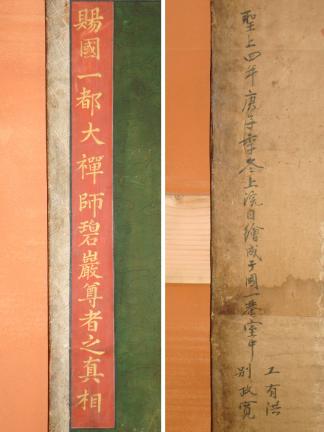 賜國一都大禪師碧巖尊者之真相
聖上四年庚子季冬上浣日繪成于國一蕃室中
工有洪
別政寬